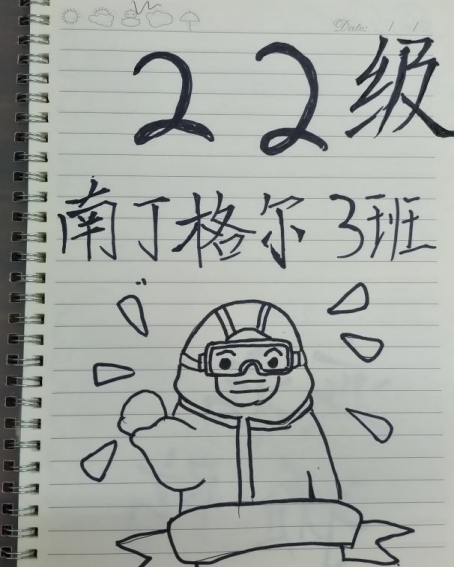 Date: / /
22级
南丁格尔3班